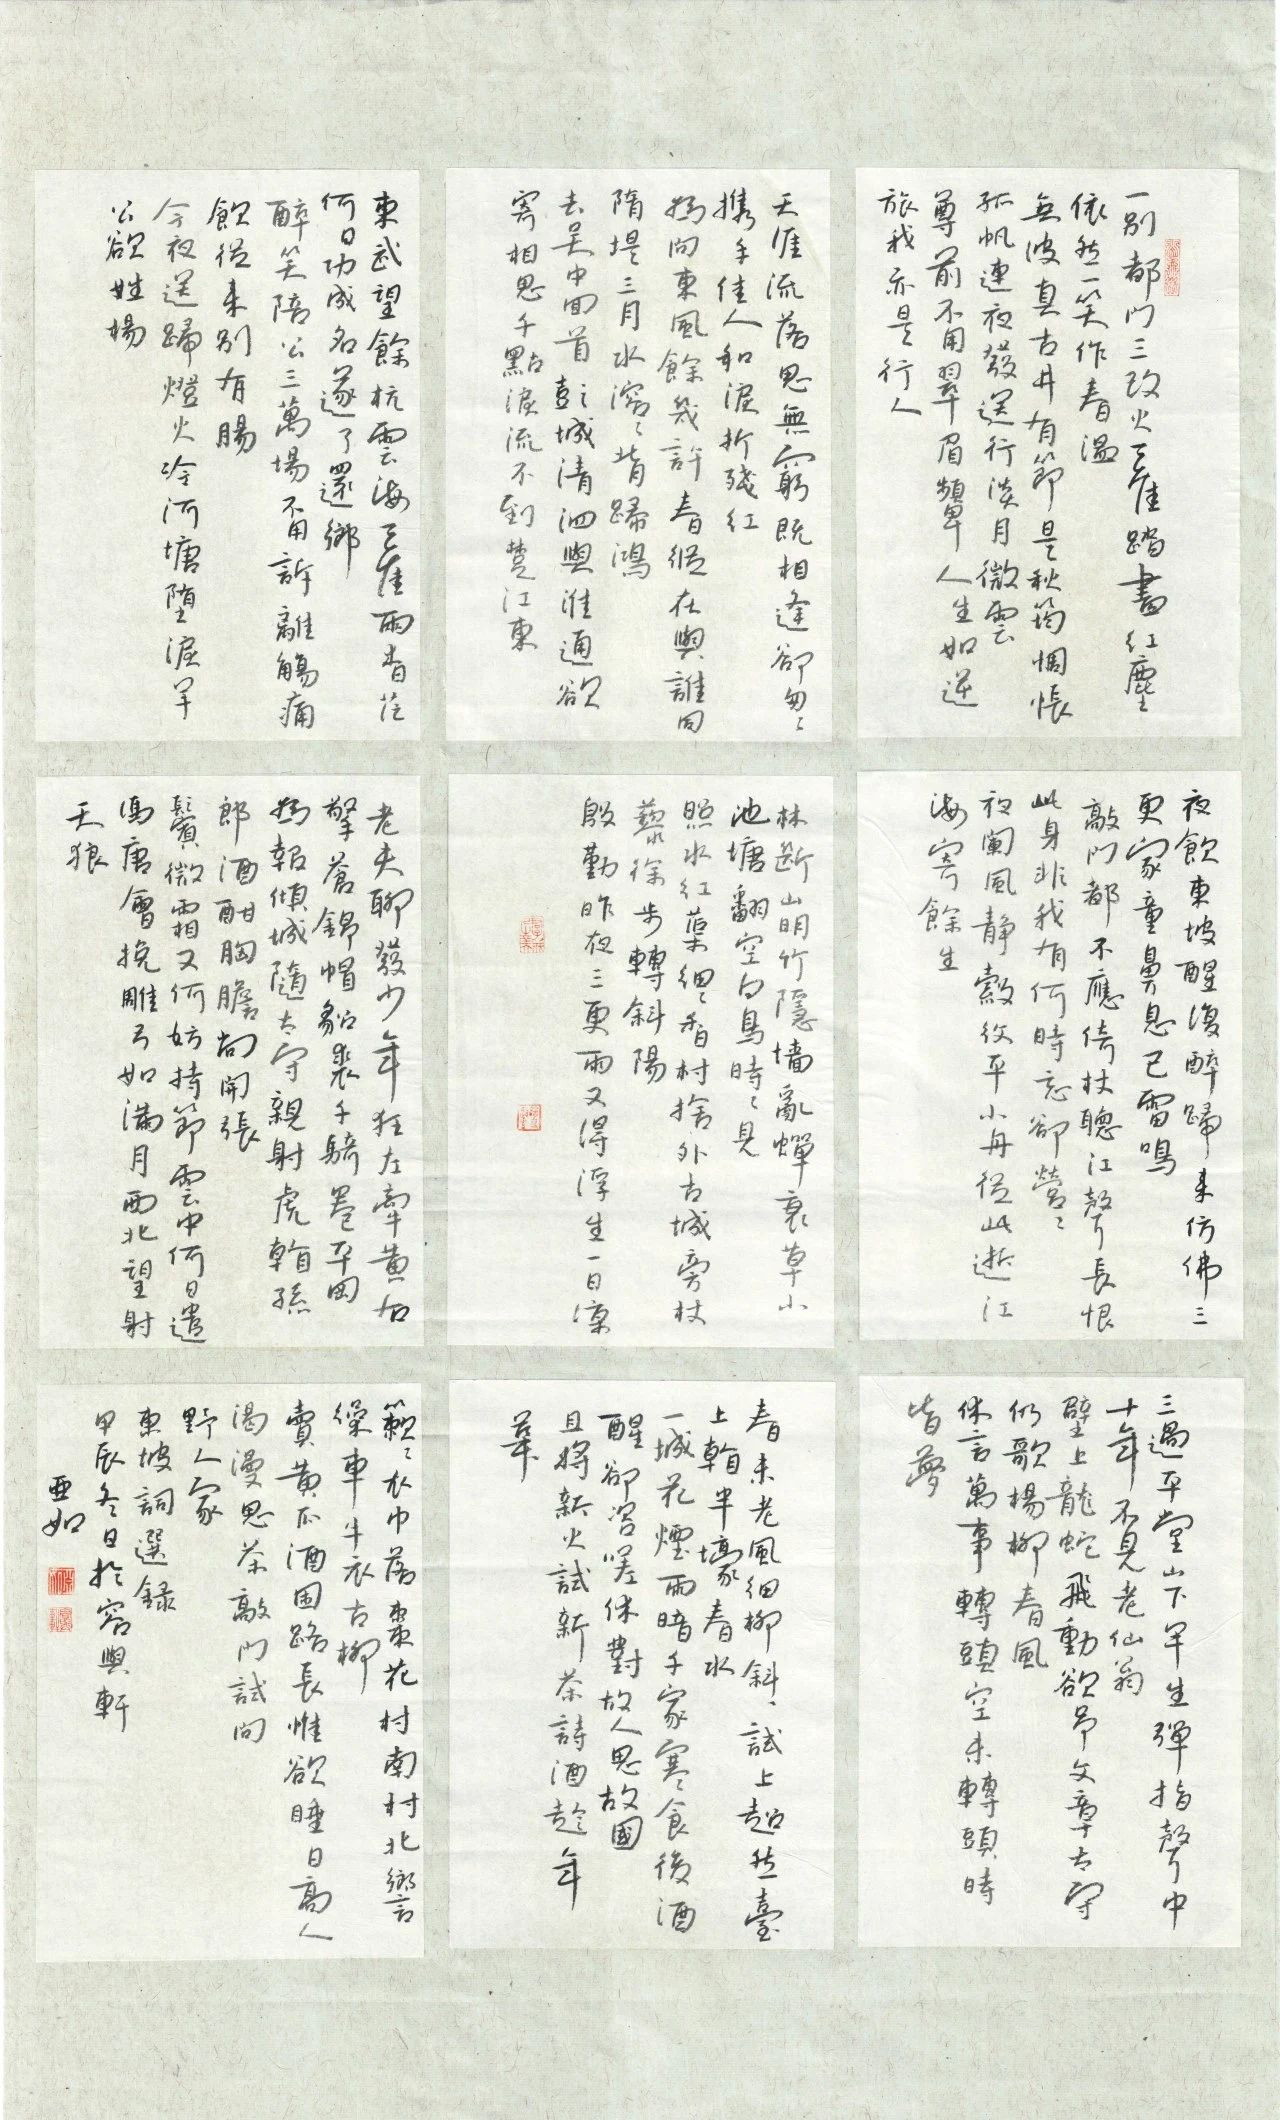 一別都門三改火天涯踏盡紅塵
依然一笑作春溫
無波真古井有節是秋筠惆悵
孤帆連夜發送行淡月微雲
尊前不用翠眉顰人生如逆
旅我亦是行人
天涯流落思無窮既相逢卻匆匆
攜手佳人和淚折殘紅
為問東風餘幾許春縱在與誰同
隋堤三月水溶溶背歸鴻
去吳中回首彭城清泗與淮通欲
寄相思千點淚流不到楚江東
東武望餘杭雲海天涯兩杳茫
何日功成名遂了還鄉
醉笑陪公三萬場不用訴離觴痛
飲從來別有腸
今夜送歸燈火冷河塘墮淚羊
公欲姓楊
夜飲東坡醒復醉歸來仿佛三
更家童鼻息已雷鳴
敲門都不應倚杖聽江聲長恨
此身非我有何時忘卻營營
夜闌風靜縠紋平小舟從此逝江
海寄餘生
林斷山明竹隱墻亂蟬衰草小
池塘翻空白鳥時時見
照水紅蕖細細香村捨外古城旁杖
藜徐步轉斜陽
殷勤昨夜三更雨又得浮生一日涼
老夫聊發少年狂左牽黃右
擎蒼錦帽貂裘千騎卷平岡
為報傾城隨太守親射虎看孫
郎酒酣胸膽尚開張
鬢微霜又何妨持節雲中何日遣
馮唐會挽雕弓如滿月西北望射
天狼
三過平堂山下半生彈指聲中
十年不見老仙翁
壁上龍蛇飛動欲弔文章太守
仍歌楊柳春風
休言萬事轉頭空未轉頭時
皆夢
春未老風細柳斜斜試上超然臺
上看半壕春水
一城花煙雨暗千家寒食後酒
醒卻咨嗟休對故人思故國
且將新火試新茶詩酒趁年
華
簌簌衣巾落棗花村南村北響
繰車牛衣古柳
賣黃瓜酒困路長惟欲睡日高人
渴漫思茶敲門試問
野人家
東坡詞選錄
甲辰冬日於容與軒
亞如